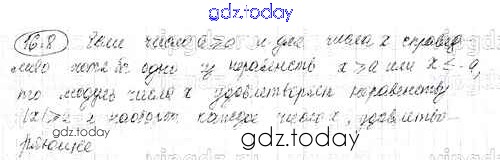 gdz.today
16.8 Если число a ≥ 0 и для числа x справед
ливо хотя бы одно из неравенств x ≥ a или x ≤ -a,
то модуль числа x удовлетворяет неравенству
gdz.today
|x| ≥ a и наоборот каждое число x, удовлетво-
gdz.today
ряющее